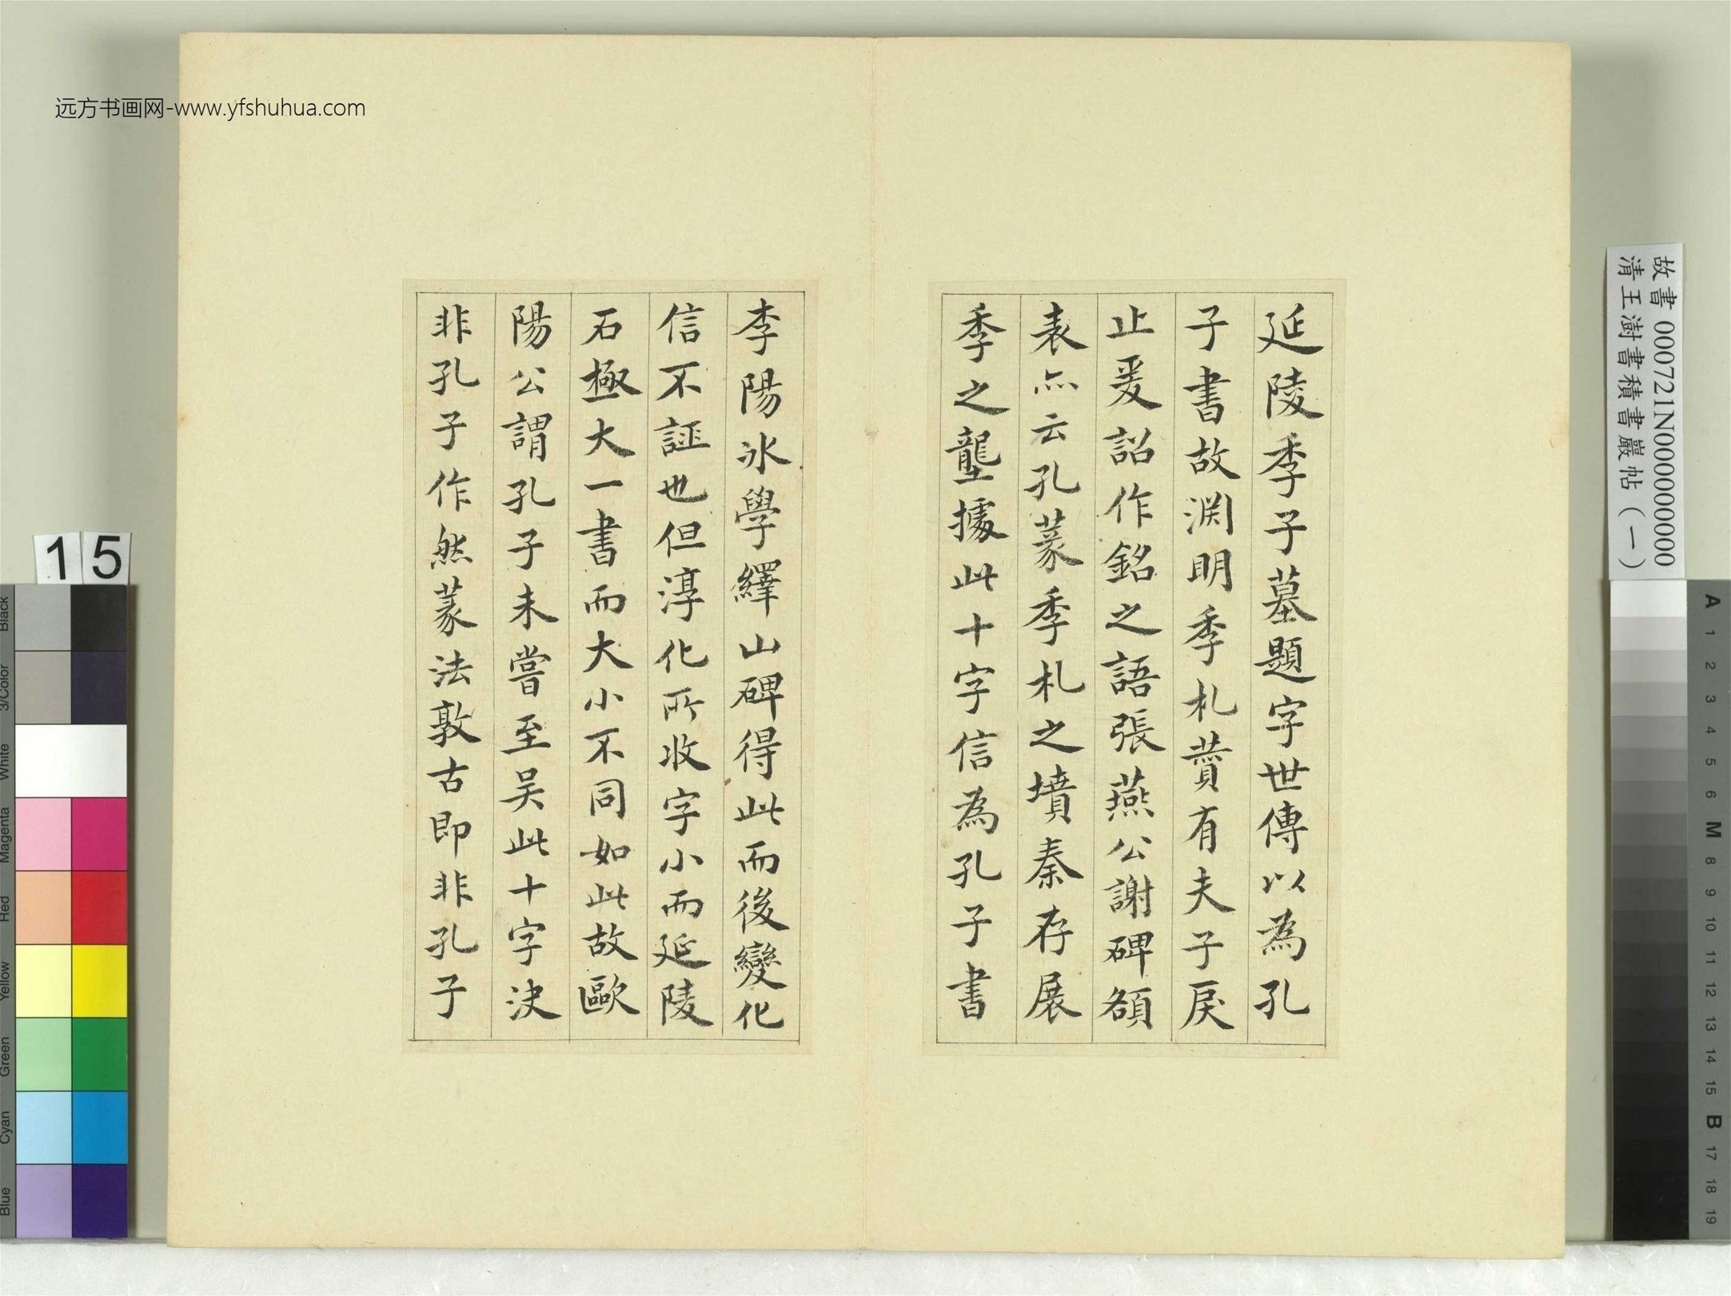 远方书画网-www.yfshuhua.com
延陵季子墓題字世傳以為孔
子書故淵明季札贊有夫子戾
止爰詔作銘之語張燕公謝碑額
表亦云孔篆季札之墳秦存展
季之壟據此十字信為孔子書
李陽冰學繹山碑得此而後變化
信不誣也但淳化所收字小而延陵
石極大一書而大小不同如此故歐
陽公謂孔子未嘗至吴此十字決
非孔子作然篆法敦古即非孔子
故書 000721N000000000
清王澍書積書巖帖（一）
15
Black
3/Color
White
Magenta
Red
Yellow
Green
Cyan
Blue
A
1
2
3
4
5
6
M
8
9
10
11
12
13
14
15
B
17
18
19